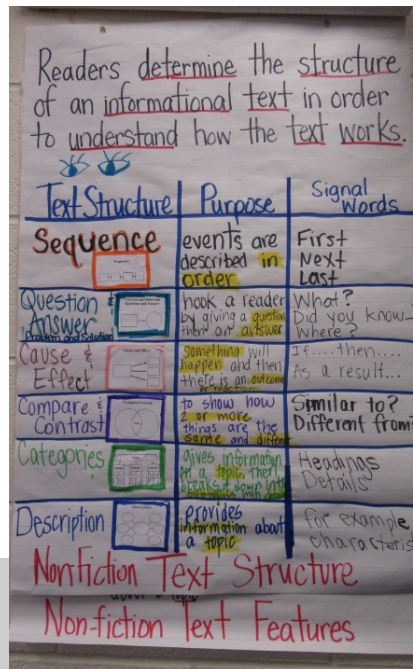 Readers determine the structure
of an informational text in order
to understand how the text works.
Text Structure
Purpose
Signal
Words
Sequence
events are
described in
order
First
Next
Last
Question
Answer
Problem and Solution
hook a reader
by giving a question
then an answer
What?
Did you know
Where?
Cause &
Effect
something will
happen and then
there is an outcome
If....then....
As a result...
Compare &
Contrast
to show how
2 or more
things are the
same and differ
Similar to?
Different from
Categories
gives information
on a topic, then
breaks it down into
Headings
Details
Description
provides
information about
a topic
for example,
characteris
Nonfiction Text Structure
about a topic
Non-fiction Text Features